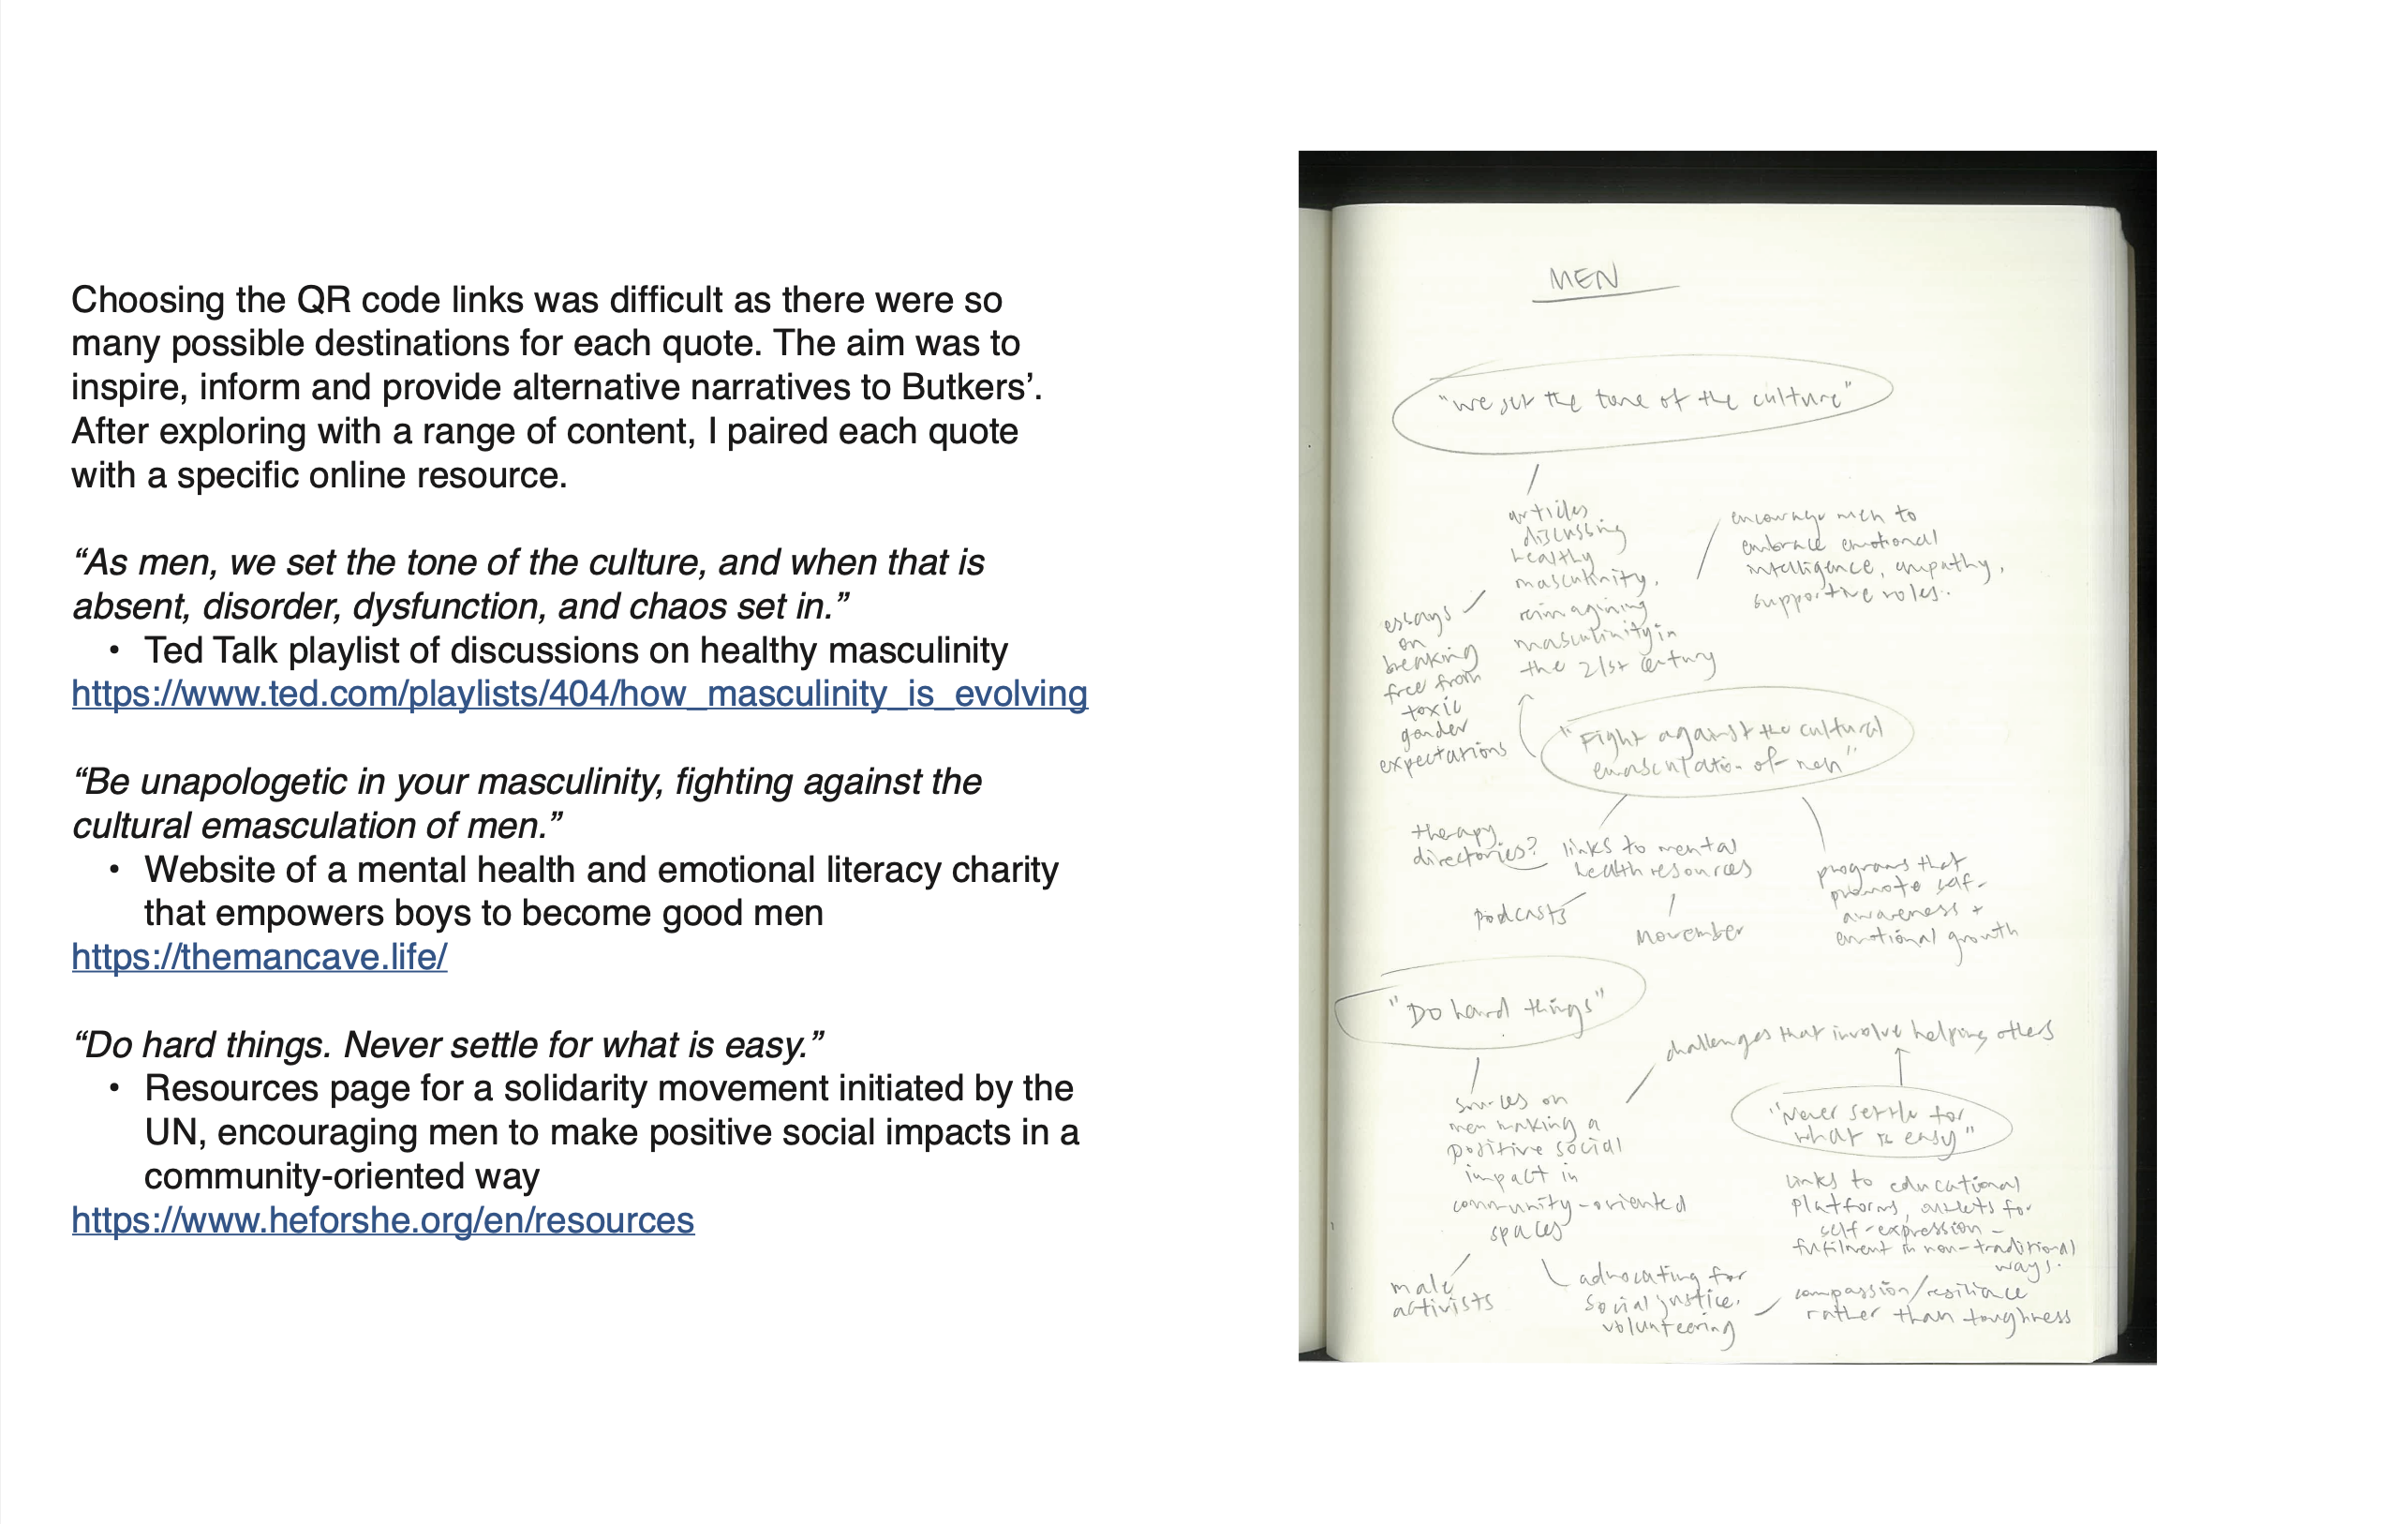 Choosing the QR code links was difficult as there were so
many possible destinations for each quote. The aim was to
inspire, inform and provide alternative narratives to Butkers’.
After exploring with a range of content, I paired each quote
with a specific online resource.
“As men, we set the tone of the culture, and when that is
absent, disorder, dysfunction, and chaos set in.”
• Ted Talk playlist of discussions on healthy masculinity
https://www.ted.com/playlists/404/how_masculinity_is_evolving
“Be unapologetic in your masculinity, fighting against the
cultural emasculation of men.”
• Website of a mental health and emotional literacy charity
that empowers boys to become good men
https://themancave.life/
“Do hard things. Never settle for what is easy.”
• Resources page for a solidarity movement initiated by the
UN, encouraging men to make positive social impacts in a
community-oriented way
https://www.heforshe.org/en/resources
MEN
"we set the tone of the culture"
articles
discussing
healthy
masculinity,
reimagining
masculinity in
the 21st century
encourage men to
embrace emotional
intelligence, empathy,
supportive roles.
essays
on
breaking
free from
toxic
gender
expectations
"Fight against the cultural
emasculation of men"
therapy
directories?
links to mental
health resources
podcasts
Movember
programs that
promote self-
awareness +
emotional growth
"Do hard things"
challenges that involve helping others
sources on
men making a
positive social
impact in
community-oriented
spaces
"Never settle for
what is easy"
links to educational
platforms, outlets for
self-expression –
fulfilment in non-traditional
ways.
male
activists
advocating for
social justice,
volunteering
compassion/resilience
rather than toughness